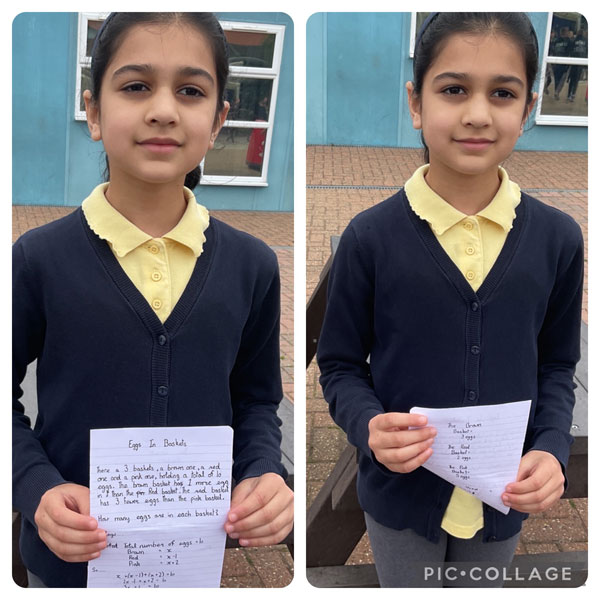 Eggs In Baskets
There a 3 baskets, a brown one, a red
one and a pink one, holding a total of 10
eggs. The brown basket has 1 more egg
in it than the Red basket. The red basket
has 3 fewer eggs than the pink basket.
How many eggs are in each basket?
Total number of eggs = 10
Brown = x
Red = x-1
Pink = x+2
So
The Brown
Basket=
3 eggs
The Red
Basket=
2 eggs
The Pink
Basket=
5 eggs
PIC•COLLAGE